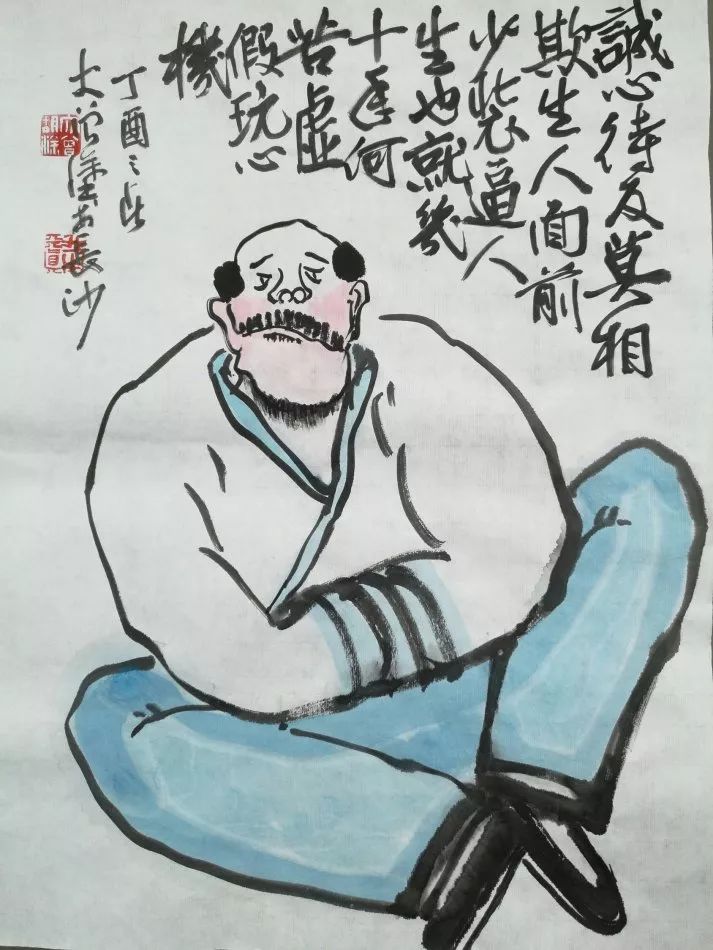 誠心待友莫相
欺生人面前
少裝逼人
生也就幾
十年何
苦虛
假玩心
機
丁酉之
大曾塗於長沙